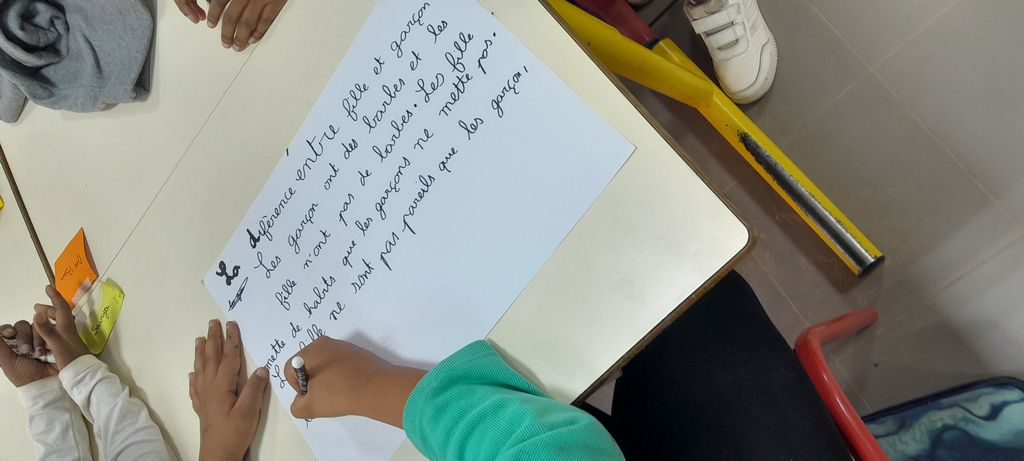 La diférence éntre fille et garçon
Les garçon ont des barbes et les
fille n'ont pas de barbes. Les fille
mette de habits que les garçons ne mette pas.
ne sont pas pareils que les garçon,
Soraya